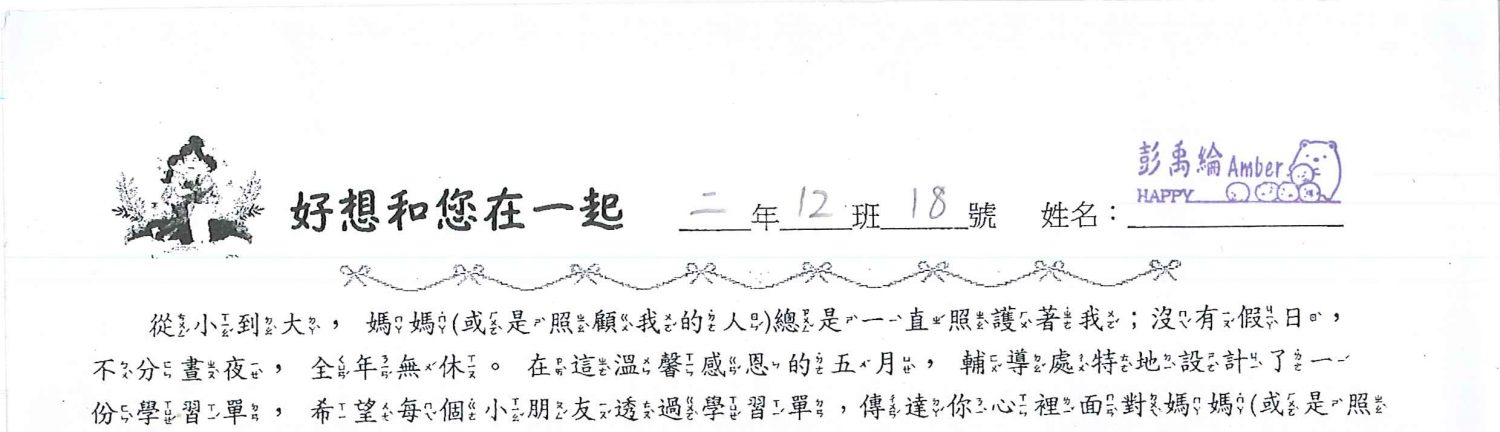 好想和您在一起 二年12班18號 姓名：彭禹綸Amber
HAPPY
從小到大，媽媽(或是照顧我的人)總是一直照護著我；沒有假日，
不分晝夜，全年無休。在這溫馨感恩的五月，輔導處特地設計了一
份學習單，希望每個小朋友透過學習單，傳達你心裡面對媽媽(或是照